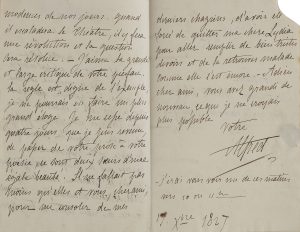 modernes de nos jours. quand
il malaxera le théâtre, il y fera
une révolution et la question
sera résolue. — J'aime la grande
et large critique de votre préface.
la règle est digne de l'exemple
je ne pourrais en faire un plus
grand éloge. Je me repose depuis
quatre jours, que je suis revenu,
de papier de votre prose à votre
poésie ce sont deux sœurs d'une
égale beauté. Il ne fallait pas
moins qu'elles et vous, cher ami,
pour me consoler de mes
derniers chagrins, d'avoir été
forcé de quitter ma chère Lydia
pour aller remplir de bien tristes
devoirs et de la retrouver malade
comme elle l'est encore. — Adieu
cher ami, vous avez grandi de
nouveau ce que je ne croyais
plus possible.
Votre
Alfred
J'irai vous voir un de ces matins
vers 10 ou 11
Xbre 1827